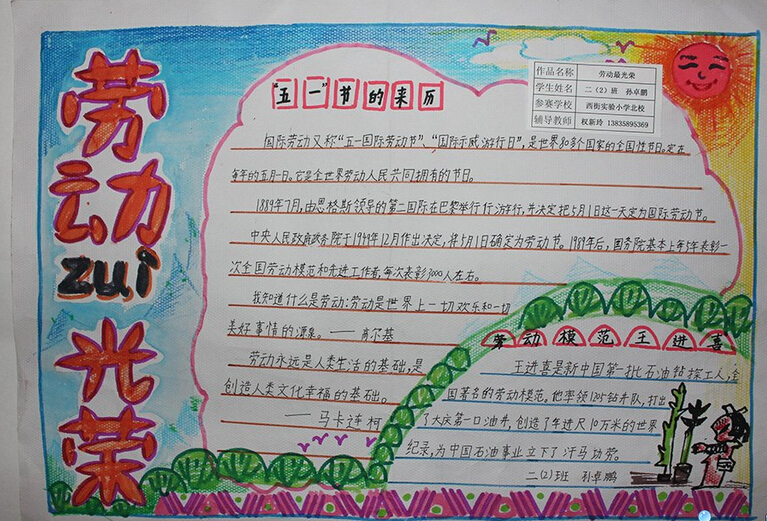 劳动
zui
光荣
作品名称 劳动最光荣
学生姓名 二（2）班 孙卓鹏
参赛学校 西街实验小学北校
辅导教师 权新玲 13835895369
"五一"节的来历
国际劳动又称"五一国际劳动节"、"国际示威游行日"，是世界80多个国家的全国性节日。定在
每年的五月一日。它是全世界劳动人民共同拥有的节日。
1889年7月，由恩格斯领导的第二国际在巴黎举行行游行，并决定把5月1日这一天定为国际劳动节。
中央人民政府政务院于1949年12月作出决定，将5月1日确定为劳动节。1989年后，国务院基本上每5年表彰一
次全国劳动模范和先进工作者，每次表彰3000人左右。
我知道什么是劳动：劳动是世界上一切欢乐和一切
美好事情的源泉。——高尔基
劳动永远是人类生活的基础，是
创造人类文化幸福的基础。
——马卡连柯
劳动模范王进喜
王进喜是新中国第一批石油钻探工人，全
国著名的劳动模范，他率领1205钻井队，打出
了大庆第一口油井，创造了年进尺10万米的世界
纪录，为中国石油事业立下了汗马功劳。
二(2)班 孙卓鹏